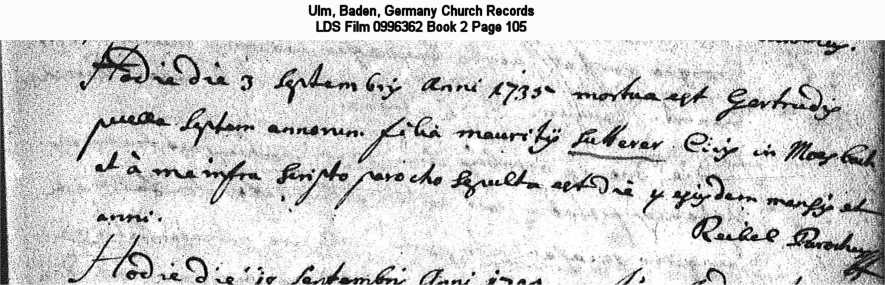 Ulm, Baden, Germany Church Records
LDS Film 0996362 Book 2 Page 105
Hodie die 3 Septembris Anni 1735 mortua est Gertrudis
puella septem annorum filia mauritij Sutterer Civis in Moesbach
et à me infra scripto parocho sepulta est die 4 ejusdem mensis et
anni.
Reibel Parochus
Hodie die 18 Septembris Anni